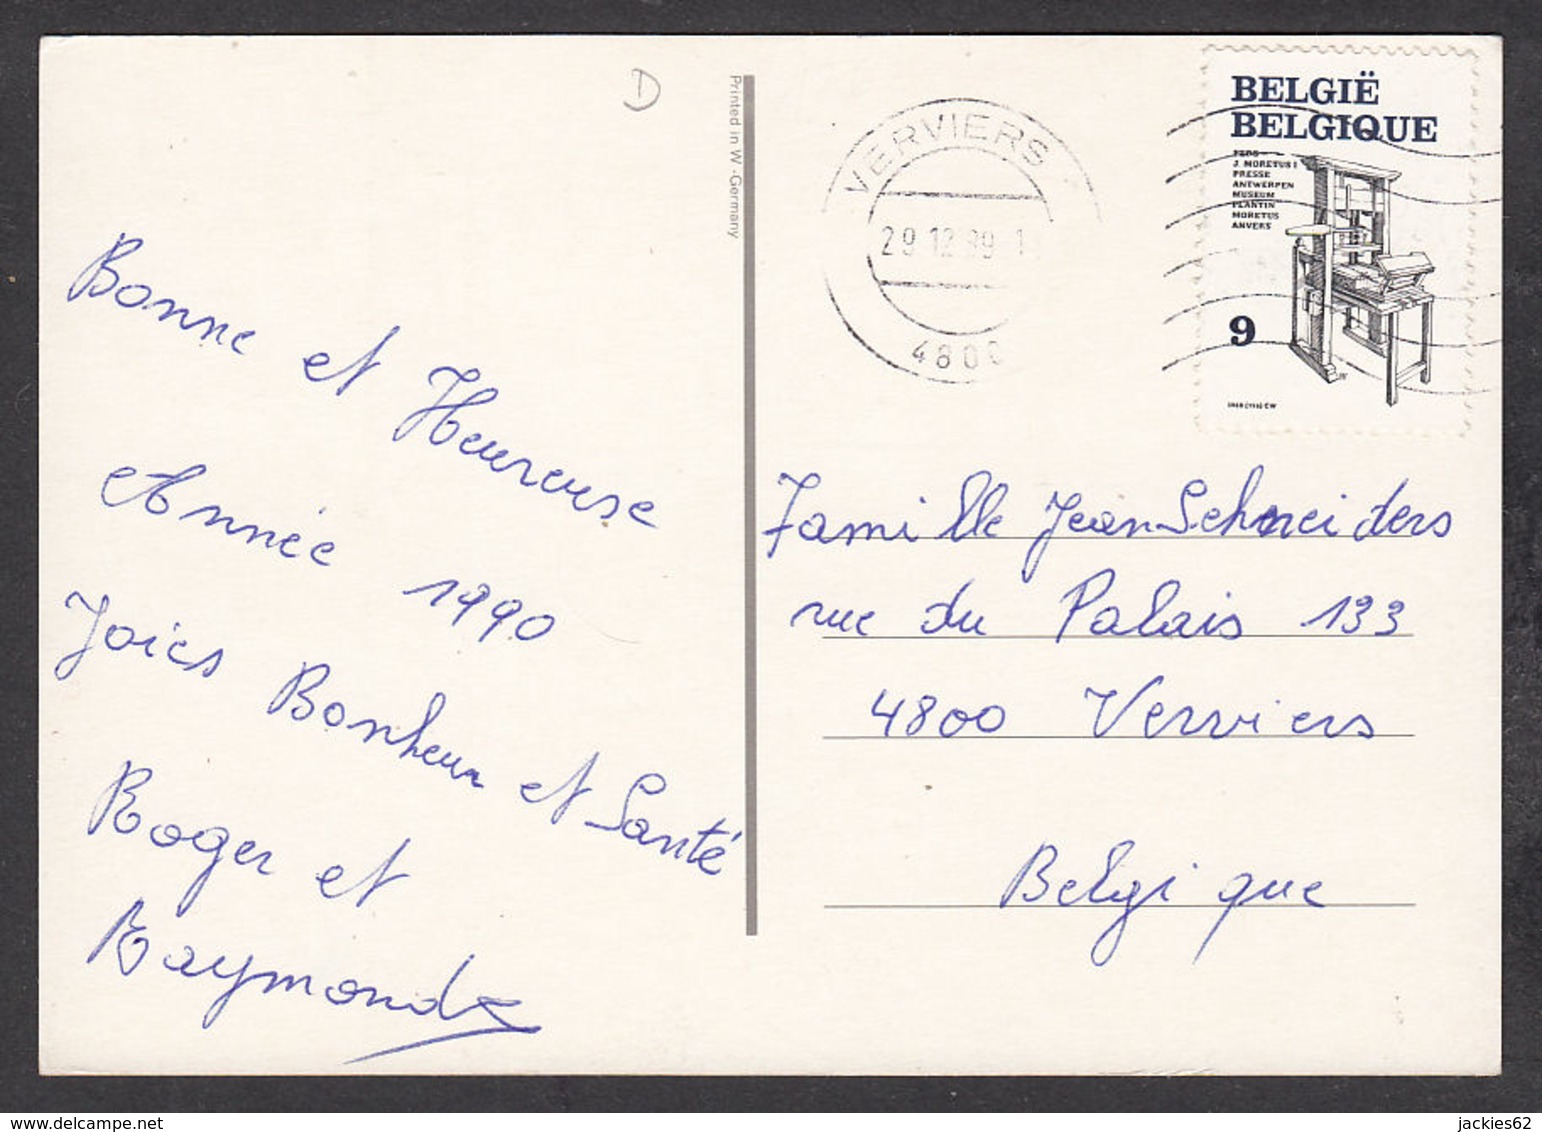 Bonne et Heureuse
Année 1990
Joies Bonheur et Santé
Roger et
Raymonde
D
Printed in W.-Germany
VERVIERS
29 12 89 1
4800
BELGIË
BELGIQUE
J. MORETUS I
PRESSE
ANTWERPEN
MUSEUM
PLANTIN
MORETUS
ANVERS
9
Famille Jean Schneiders
rue du Palais 133
4800 Verviers
Belgique
www.delcampe.net
jackies62